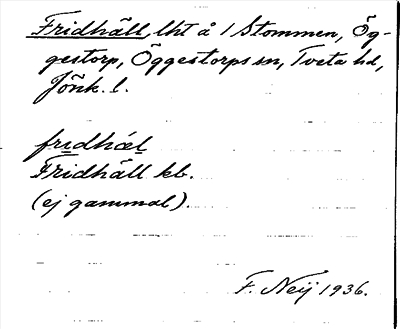 Fridhäll, lht å 1 Stommen, Ög-
gestorp, Öggestorps sn, Tveta hd,
Jönk. l.
fridhæl
Fridhäll kb.
(ej gammal).
F. Neij 1936.